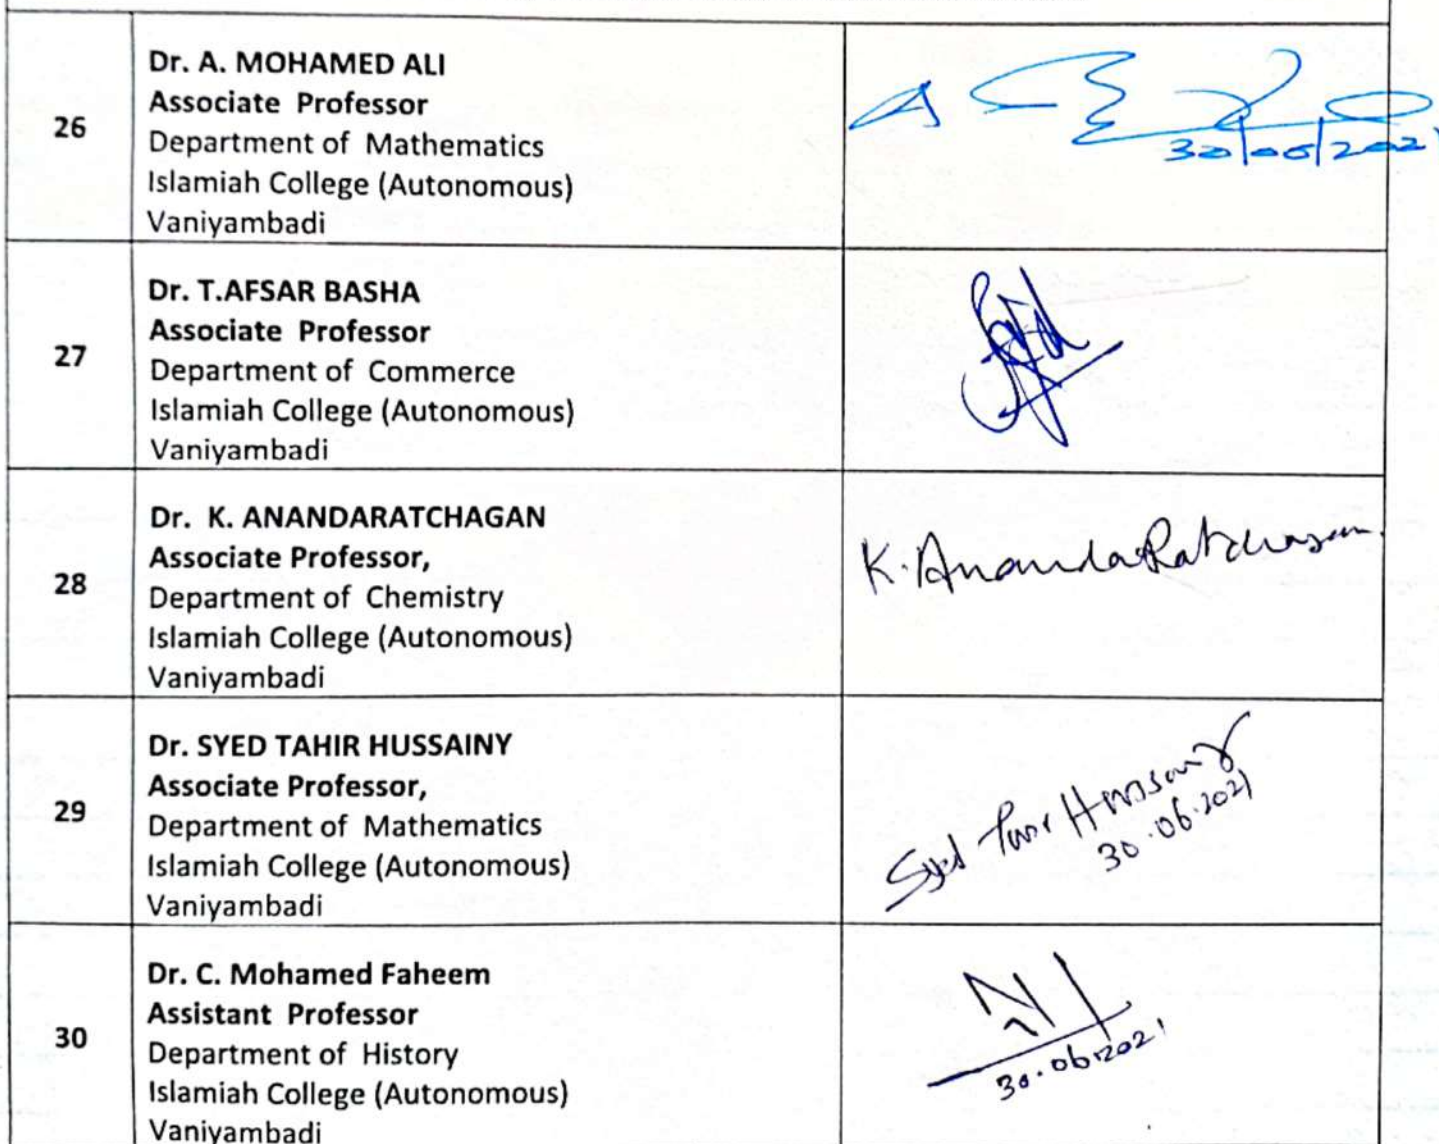 26
Dr. A. MOHAMED ALI
Associate Professor
Department of Mathematics
Islamiah College (Autonomous)
Vaniyambadi
30/06/2021
27
Dr. T.AFSAR BASHA
Associate Professor
Department of Commerce
Islamiah College (Autonomous)
Vaniyambadi
28
Dr. K. ANANDARATCHAGAN
Associate Professor,
Department of Chemistry
Islamiah College (Autonomous)
Vaniyambadi
K. AnandaRatchagan.
29
Dr. SYED TAHIR HUSSAINY
Associate Professor,
Department of Mathematics
Islamiah College (Autonomous)
Vaniyambadi
Syed Tahir Hussainy
30.06.2021
30
Dr. C. Mohamed Faheem
Assistant Professor
Department of History
Islamiah College (Autonomous)
Vaniyambadi
30.06.2021